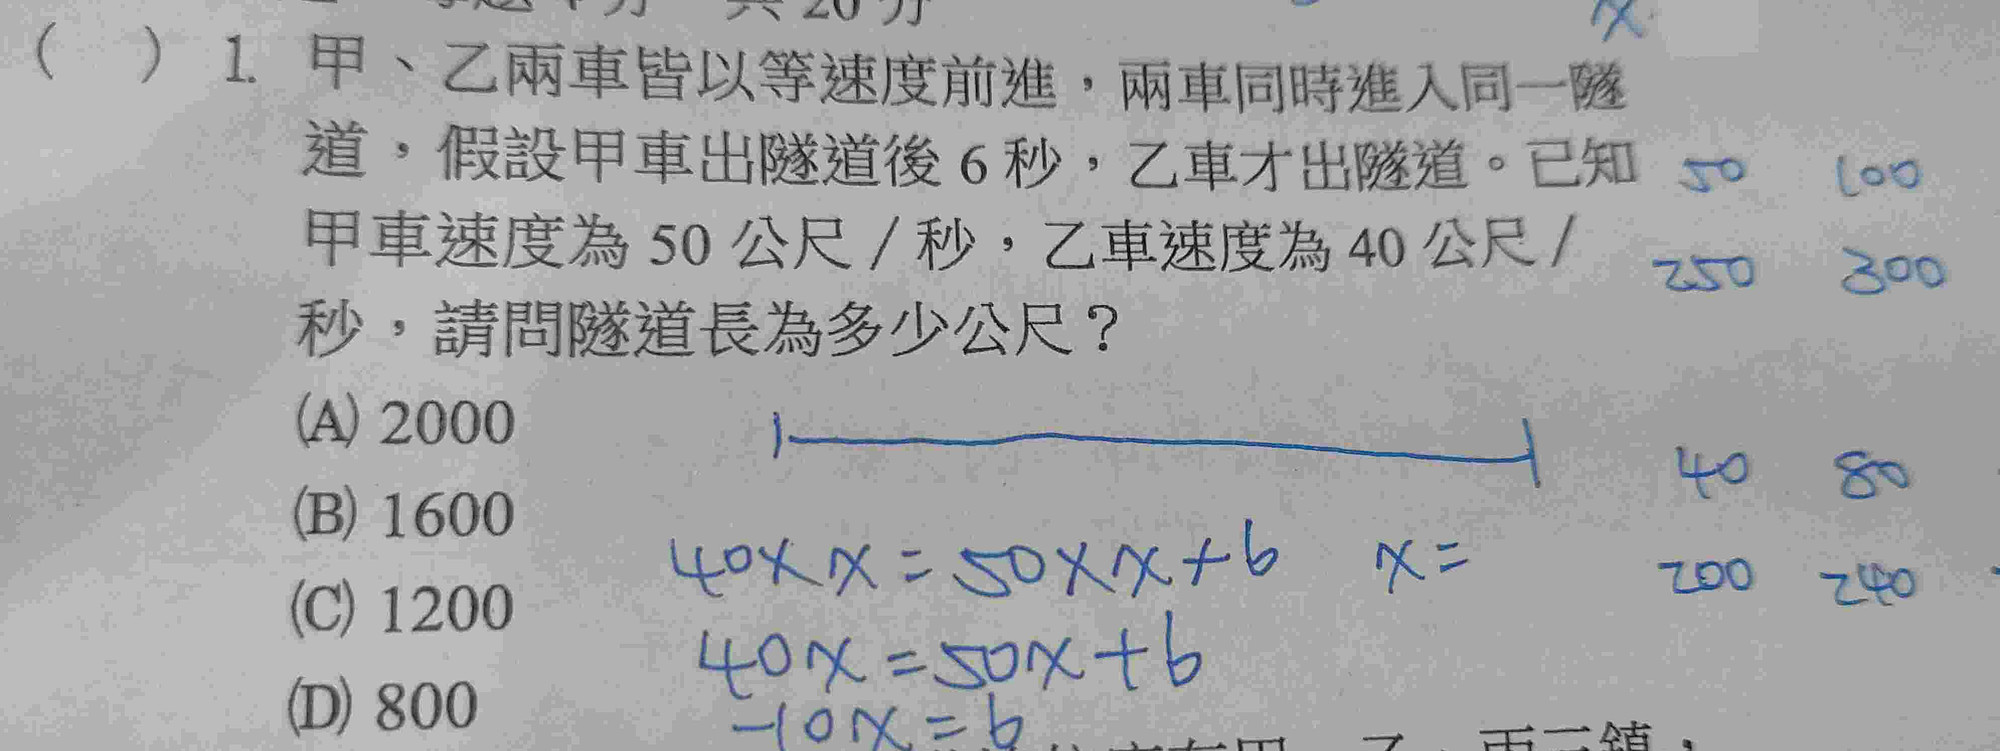 共 20 分
x
( ) 1. 甲、乙兩車皆以等速度前進，兩車同時進入同一隧
道，假設甲車出隧道後 6 秒，乙車才出隧道。已知
50 100
甲車速度為 50 公尺／秒，乙車速度為 40 公尺／
250 300
秒，請問隧道長為多少公尺？
(A) 2000
40 80
(B) 1600
40×x=50×x+6 x=
200 240
(C) 1200
40x=50x+6
(D) 800
-10x=6